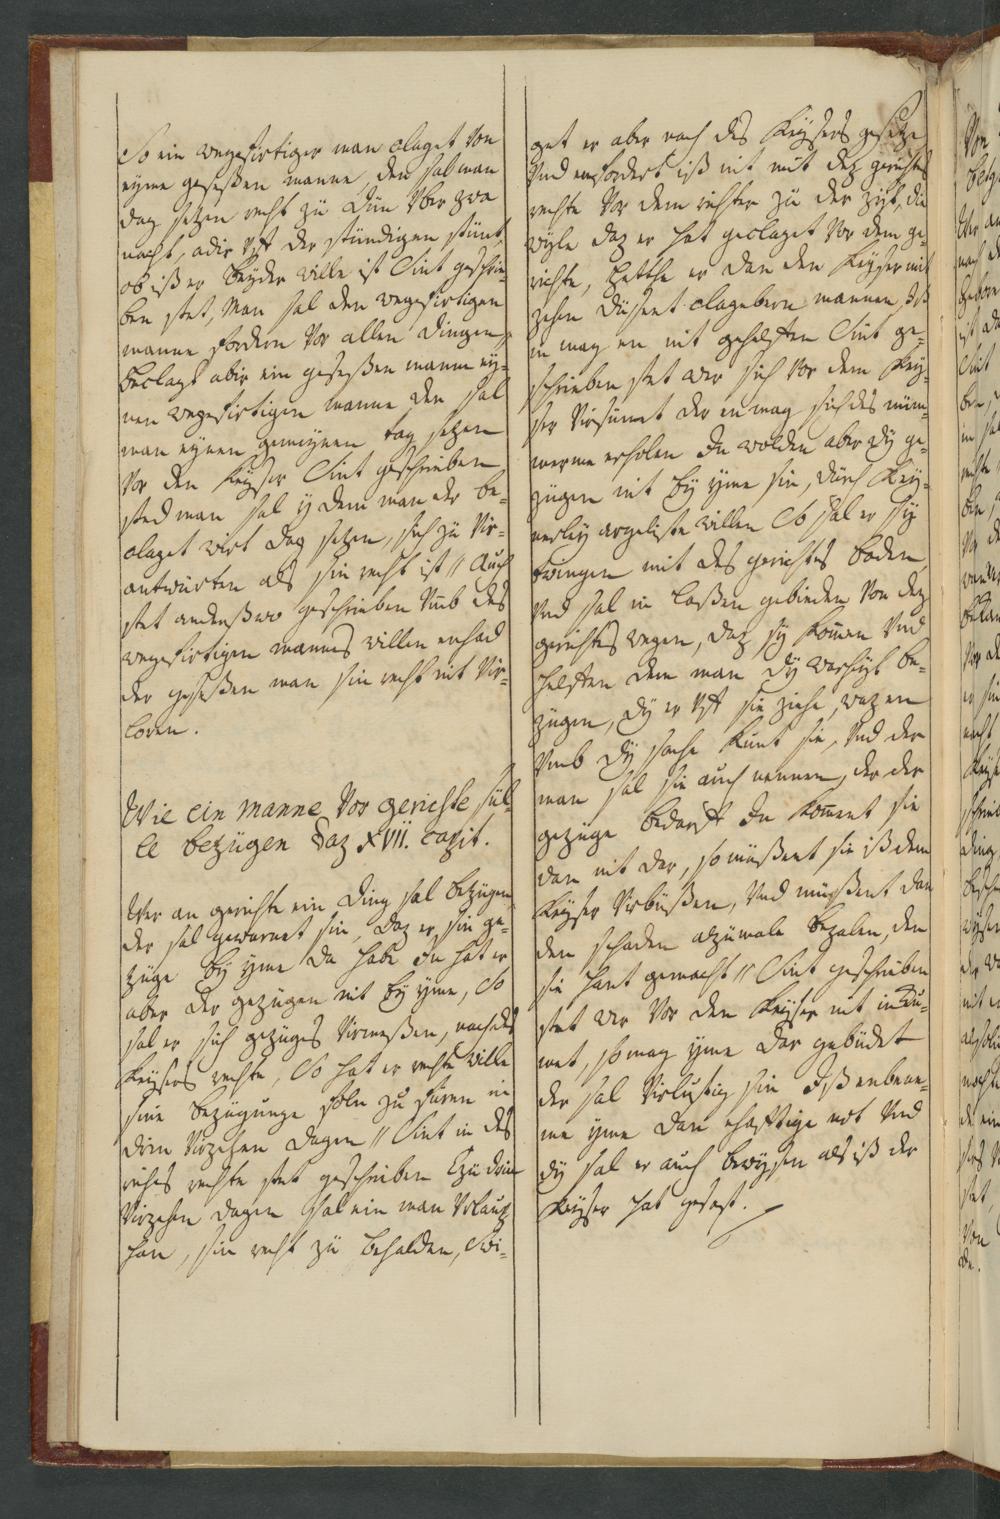 So ein wegefirtiger man claget von
eyme geseßen manne, dem sal man
dag setzen recht zü dün über zwa
nacht, adir uff der stündigen stünt,
ob iß er beyder wille ist Sint geschrie-
ben stet, Man sal den wegefirtigen
manne fordern vor allen dingen,
beclagt abir ein geseßen manne ey-
nen wegefirtigen manne, den sal
man eynen gemeynen tag setzen
vor den Keyser Sint geschrieben
sted man sal y dem man der be-
claget wirt dag setzen, sich zü vir-
antwürten als sin recht ist // Auch
stet anderßwo geschrieben vmb des
wegefirtigen mannes willen enhad
der geseßen man sin recht nit vir-
loren.
Wie ein manne vor gerichte sül-
le bezügen daz XVII. capit.
Wer an gerichte ein ding sal bezügen
der sal gewarnet sin, daz er sin ge-
züge by yme da habe In hat er
aber der gezügen nit by yme, So
sal er sich gezüges virmeßen, nach des
Keysers rechte, So hat er rechte wille
sine bezügunge foln zu füren in
drin virzehen dagen // Sint in des
riches rechte stet geschrieben Czü drin
virzehen dagen sal ein man vrlaup
han, sin recht zü behalden, Swi-
get er aber nach des Keysers gesetze
vnd enfordert iß nit mit dez gerichtes
rechte vor dem richter zü der zyt, die
wyle daz er hat geclaget vor dem ge-
richte, hette er dan den Keyser mit
zehen düsent clagebern mannen, diß
in mag en nit gehelffen Sint ge-
schrieben stet wer sich vor dem Key-
ser virsumet der en mag sich des nüm-
merme erholen In wolden aber dy ge-
zügen nit by yme sin, dürch key-
nerley argeliste willen So sal er sy
twingen mit des gerichtes boden,
vnd sal in laßen gebieden von dez
gerichtes wegen, daz sy komen vnd
helffen dem man dy warheyt be-
zügen, dy er vff sie ziehe, waz en
vmb dy sache kunt sie, vnd der
man sal sie auch nennen, der der
gezüge bedarff In koment sie
dan nit dar, so müßent sie iß dem
Keyser virbüßen, vnd müßent dan
den schaden alzümale bezalen, den
sie hant gemacht // Sint geschrieben
stet wer vor den Keyser nit in kü-
met, so mag yme dar gebüdet
der sal virlustig sin Iß enbene-
me yme dan ehafftige not vnd
dy sal er auch bewysen als iß der
Keyser hat gesast.